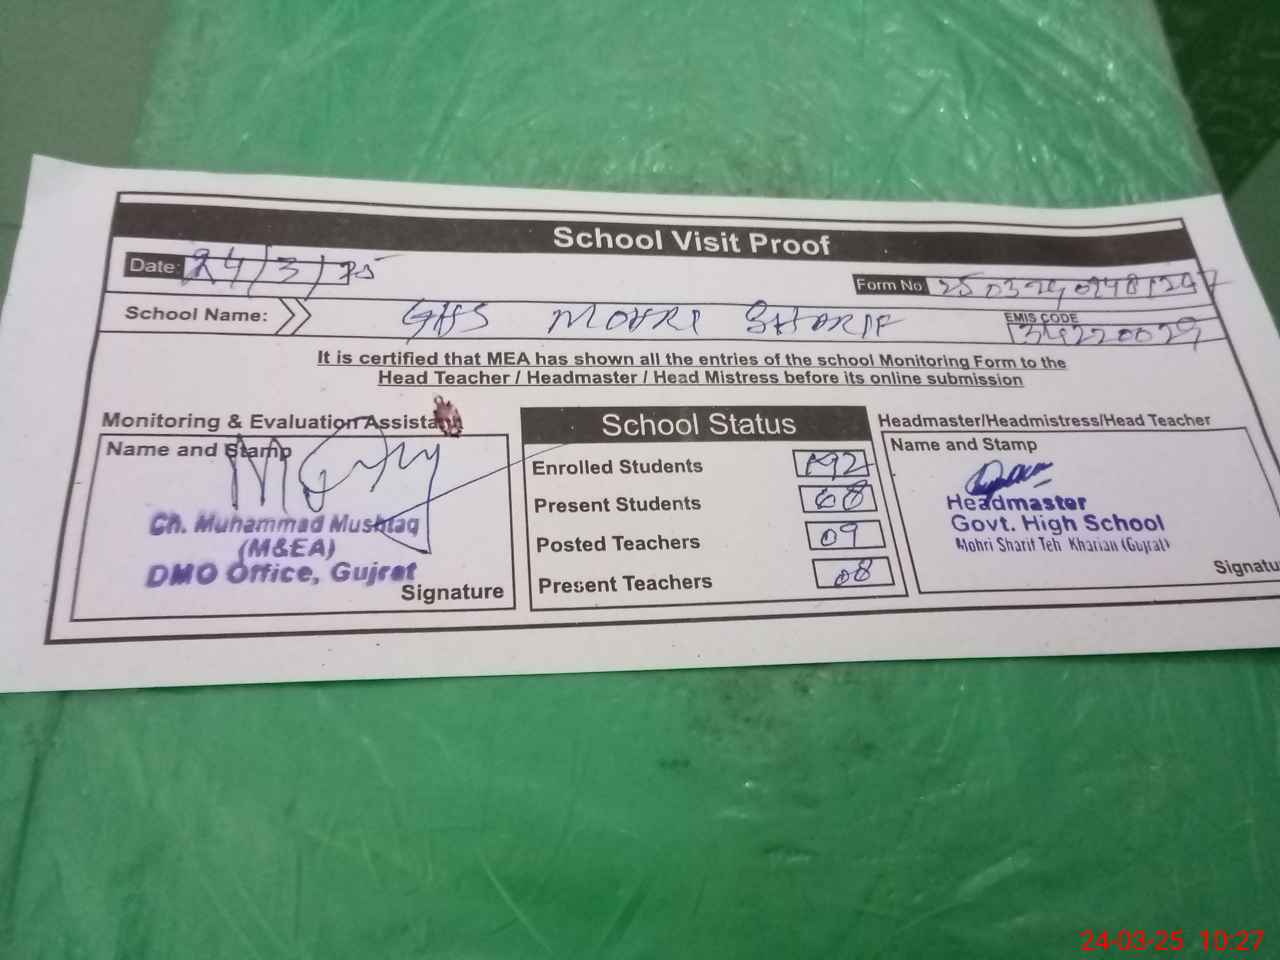 School Visit Proof
Date: 24/3/25
Form No.
School Name: GHS MOHRI SHARIF
EMIS CODE 34220029
It is certified that MEA has shown all the entries of the school Monitoring Form to the
Head Teacher / Headmaster / Head Mistress before its online submission
Monitoring & Evaluation Assistant
Name and Stamp
Ch. Muhammad Mushtaq
(M&EA)
DMO Office, Gujrat
Signature
School Status
Enrolled Students 192
Present Students 68
Posted Teachers 09
Present Teachers 08
Headmaster/Headmistress/Head Teacher
Name and Stamp
Headmaster
Govt. High School
Mohri Sharif Teh Kharian (Gujrat)
Signatu
24-03-25 10:27